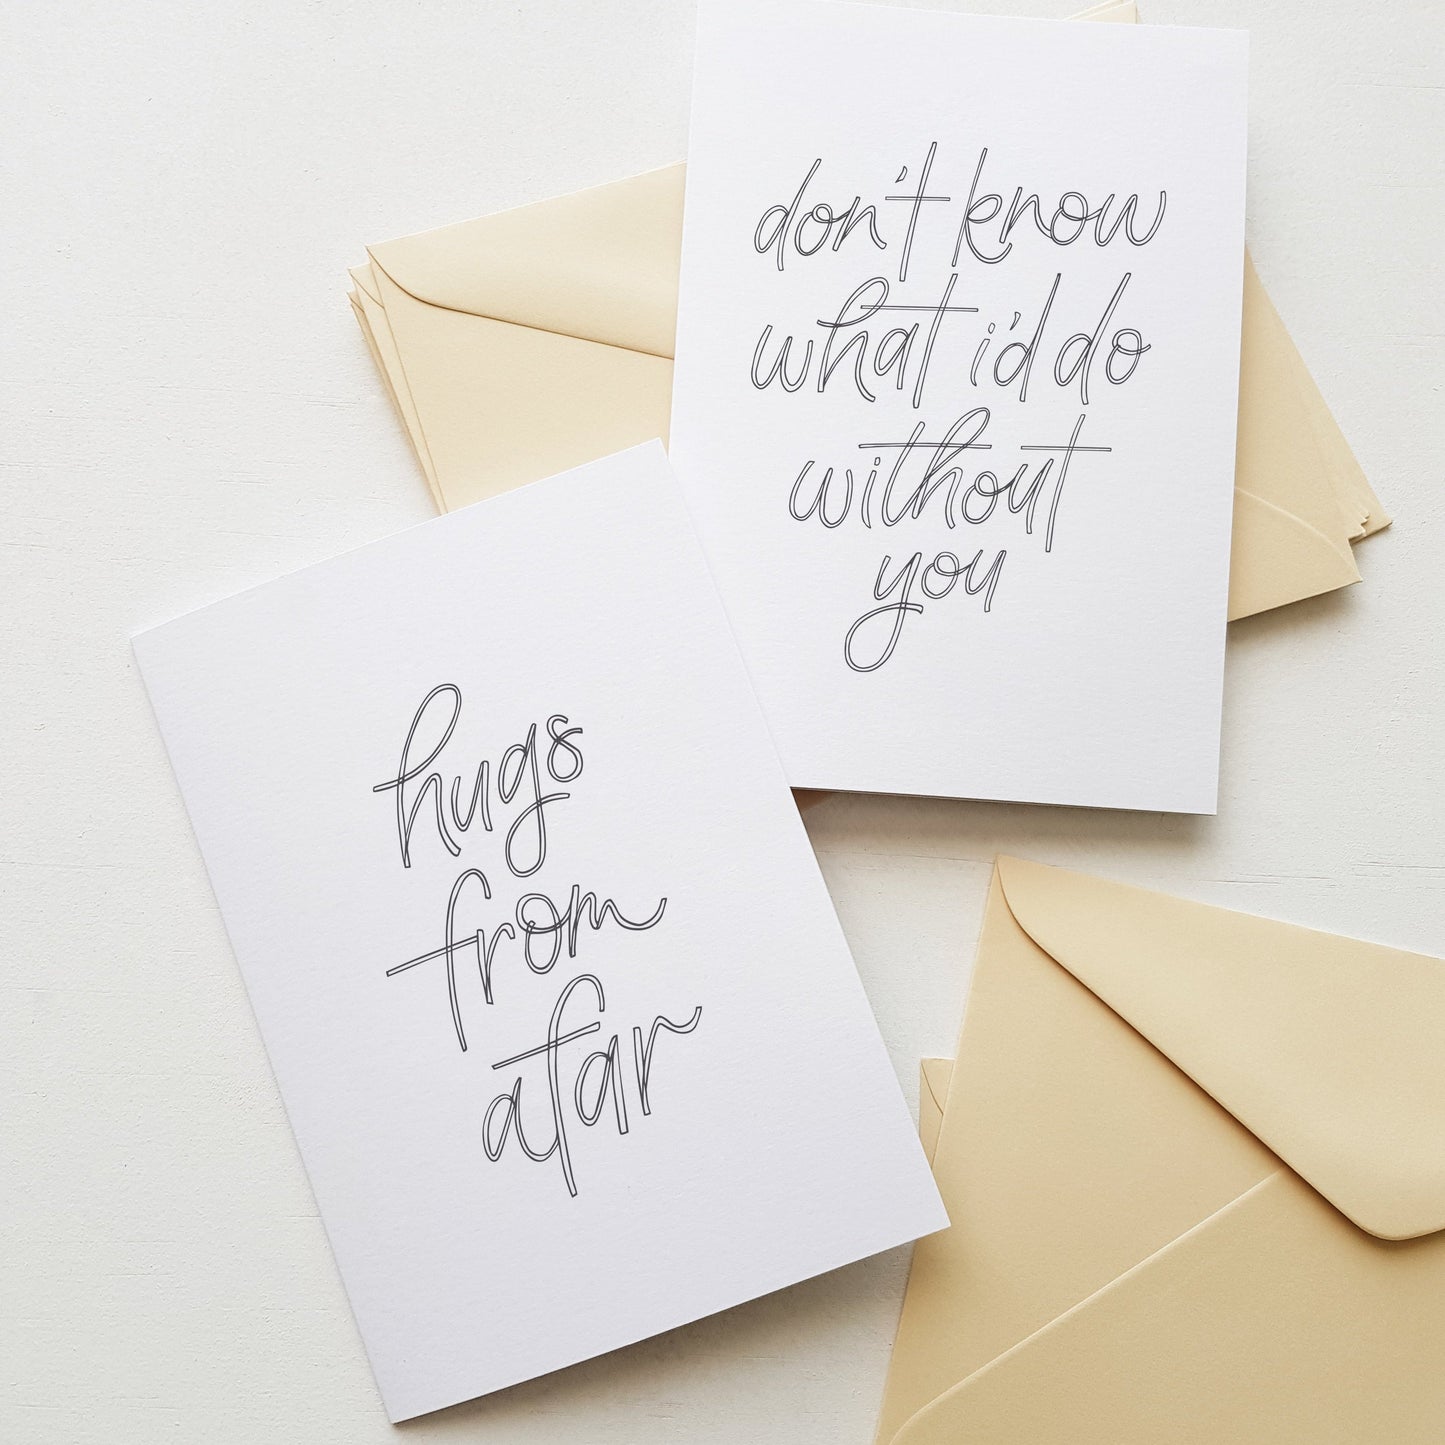 don't know
what i'd do
without
you
hugs
from
afar